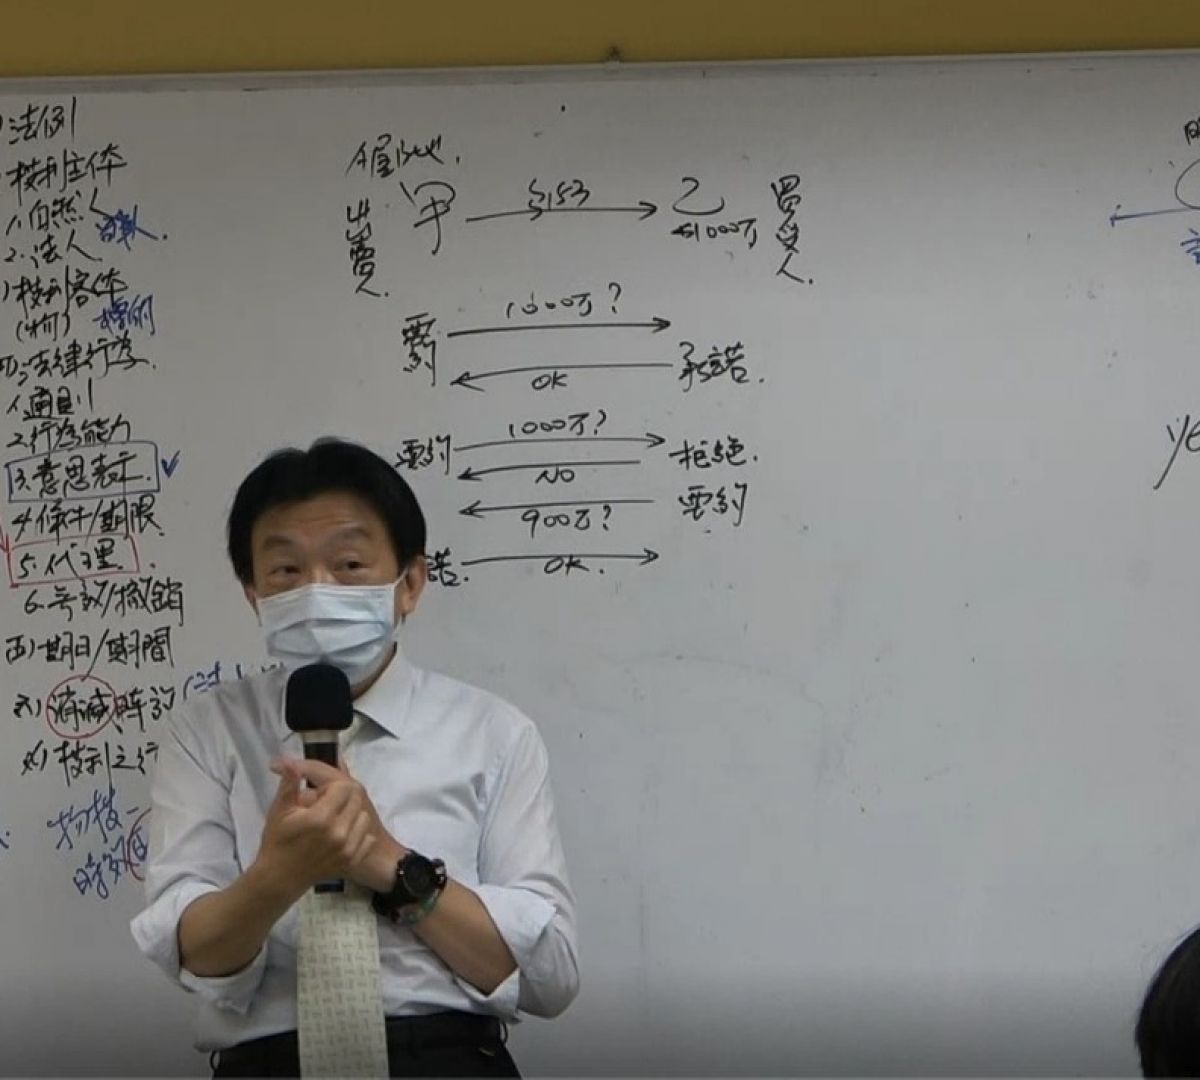 法例
權利主体
1.自然人
2.法人
權利客体
(物) 標的
法律行為.
1.通則
2.行為能力
3.意思表示.
4.條件/期限
5.代理.
6.無效/撤銷
五)期日/期間
六)消滅時效
七)權利之行
物權
時效
房屋
甲 $153 乙
出賣人.
$1000万
買受人.
1000万?
要約
承諾.
OK
1000万?
要約
拒絕.
NO
要約
900万?
諾.
OK.